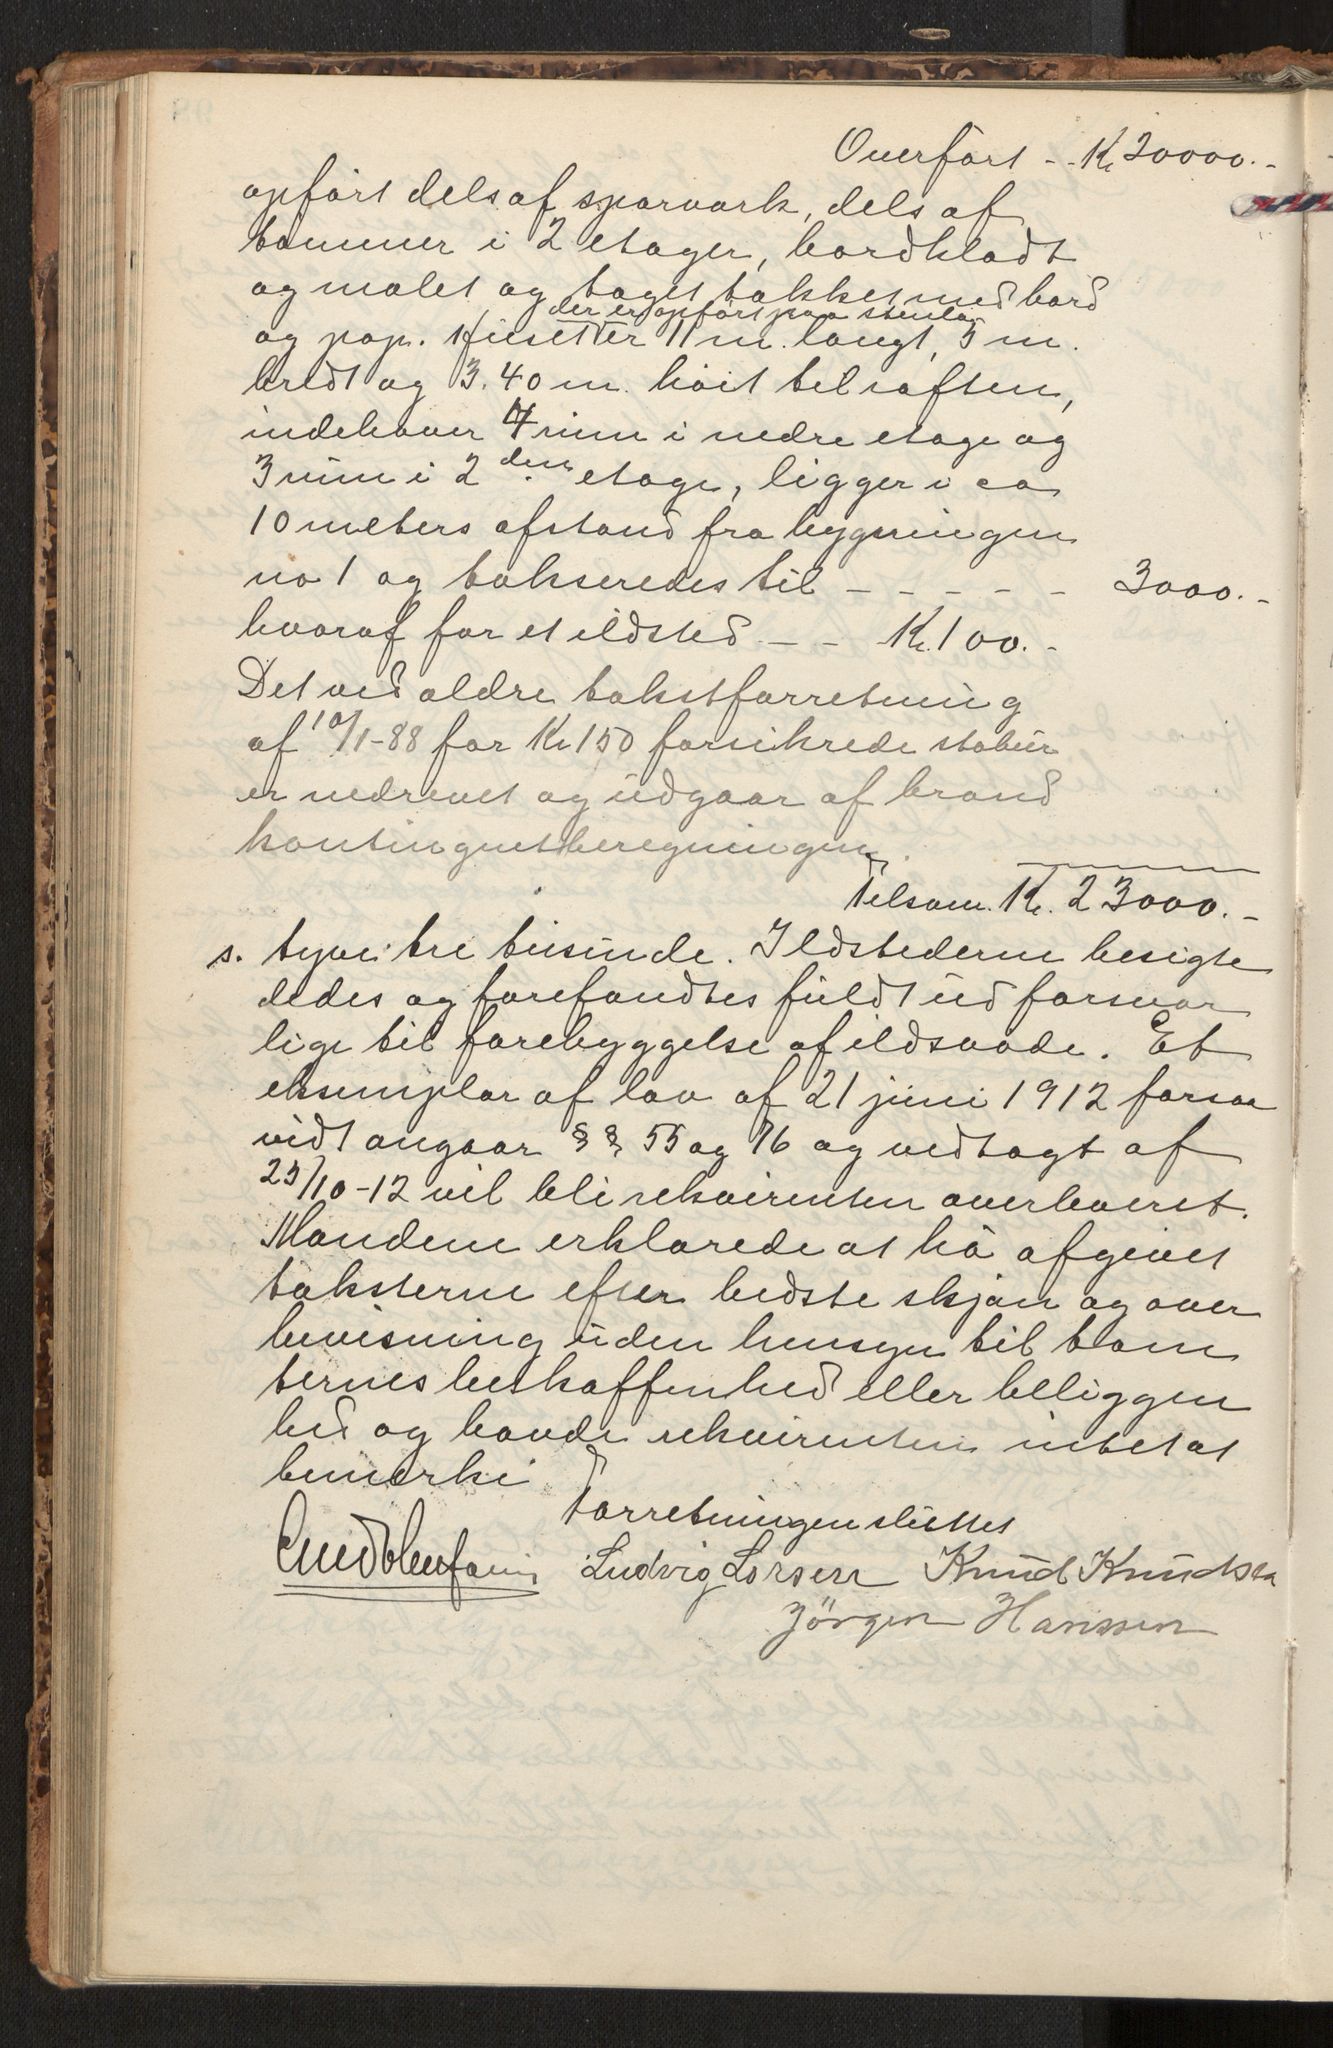 Overført - - Kr 20000.-
opført dels af sparværk, dels af
tømmer i 2 etager, bordklædt
og malet og taget tækket med bord
der er opført paa stenlag
og pap. Huset er 11 m. langt, 5 m.
bredt og 3.40 m. høit til raften,
indehaver 4 rum i nedre etage og
3 rum i 2den etage, ligger i ca
10 meters afstand fra bygningen
no 1 og takseredes til - - - - - 3000.-
hvoraf for et ildsted - - Kr. 100.-
Det ved ældre takstforretning
af 10/1-88 for Kr 150 forsikrede stabur
er nedrevet og udgaar af brand
kontingentberegningen.
Tilsam. Kr. 23000.-
s. tyve tre tusinde. Ildstederne besigte
dedes og forefandtes fuldt ud forsvar
lige til forebyggelse af ildsvaade. Et
eksemplar af lov af 21 juni 1912 forsaa
vidt angaar §§ 55 og 76 og vedtagt af
25/10-12 vil bli rekvirenten overleveret.
Mændene erklærede at ha afgivet
taksterne efter bedste skjøn og over
bevisning uden hensyn til tom
ternes beskaffenhed eller beliggen
hed og havde rekvirenten intet at
bemerke
Forretningen sluttet
Ludvig Larsen Knud Knudsen
Jörgen Hanssen